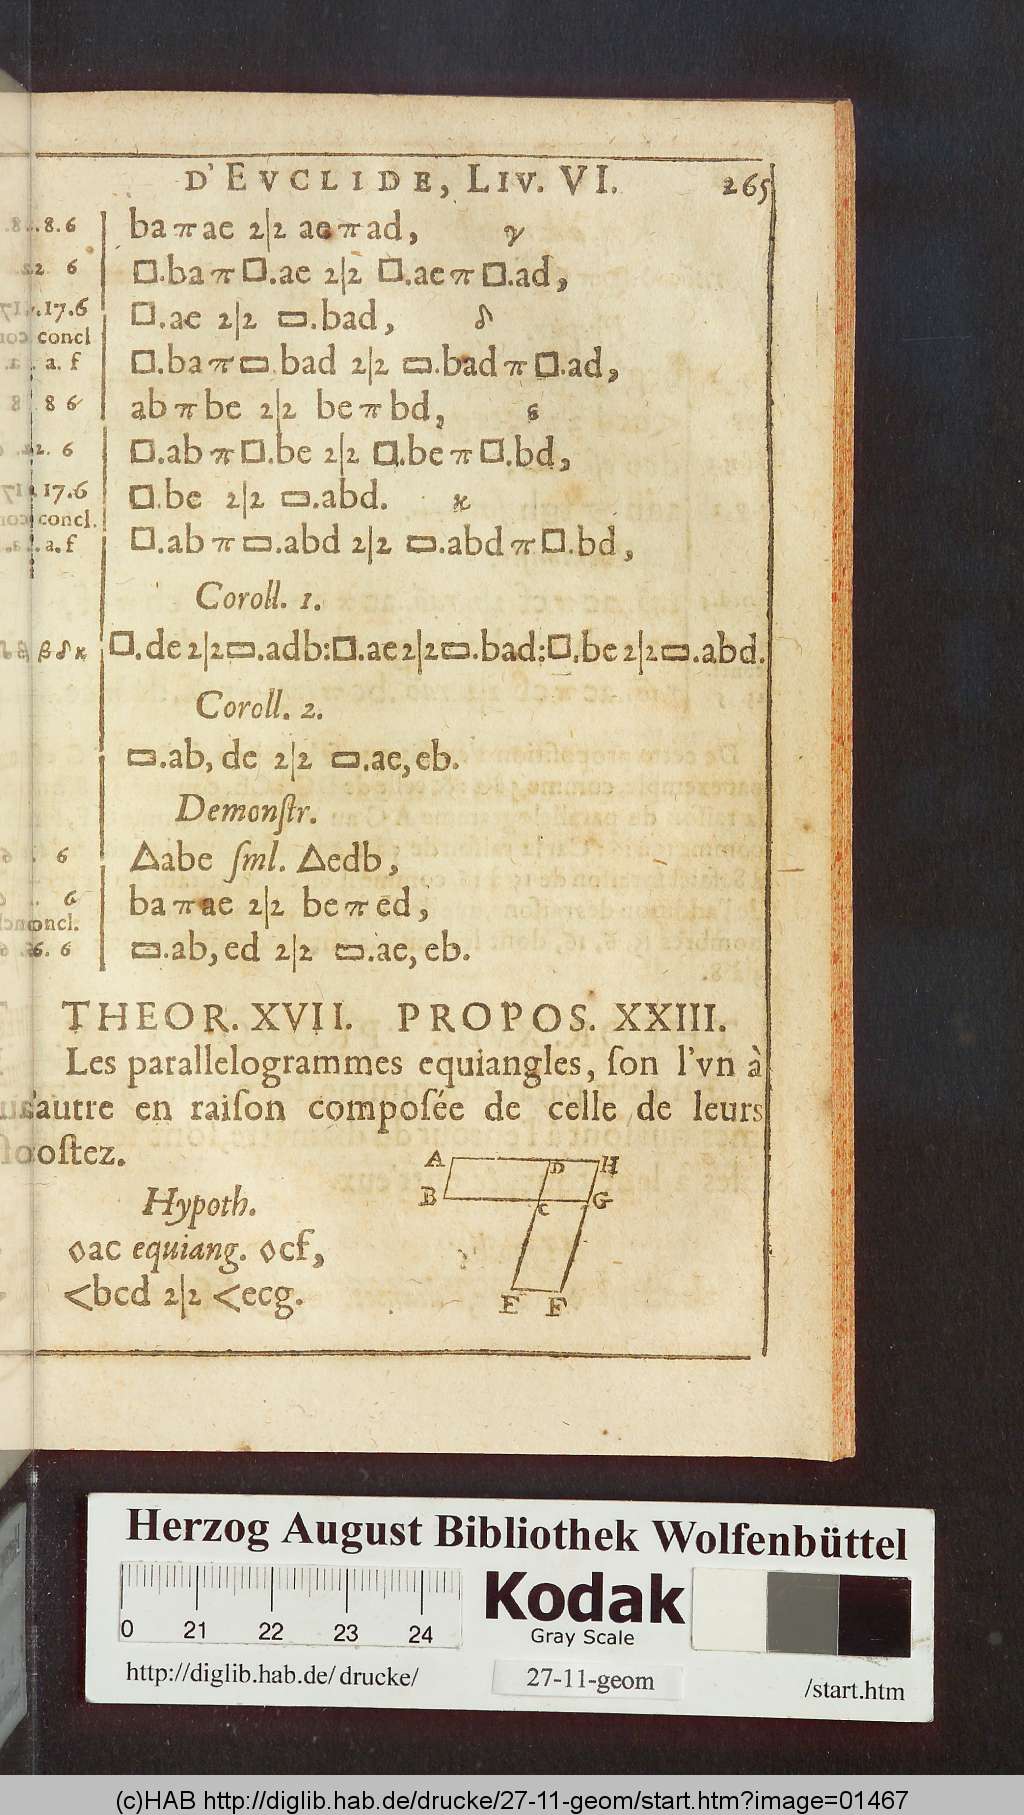 D'EVCLIDE, LIV. VI. 265
8.6 ba π ae 2|2 ae π ad, γ
22 6 □.ba π □.ae 2|2 □.ae π □.ad,
17.6 □.ae 2|2 ▭.bad, δ
concl
a. f □.ba π ▭ bad 2|2 ▭.bad π □.ad,
8 6 ab π be 2|2 be π bd, ε
22. 6 □.ab π □.be 2|2 □.be π □.bd,
17.6 □.be 2|2 ▭.abd. ϰ
concl.
a. f □.ab π ▭.abd 2|2 ▭.abd π □.bd,
Coroll. 1.
β δ ϰ □.de 2|2 ▭.adb: □.ae 2|2 ▭.bad: □.be 2|2 ▭.abd.
Coroll. 2.
▭.ab, de 2|2 ▭.ae, eb.
Demonſtr.
6 △abe ſml. △edb,
6 ba π ae 2|2 be π ed,
concl.
6. 6 ▭.ab, ed 2|2 ▭.ae, eb.
THEOR. XVII. PROPOS. XXIII.
Les parallelogrammes equiangles, ſon l'vn à
l'autre en raiſon compoſée de celle de leurs
coſtez.
A D H
B C G
E F
Hypoth.
◊ac equiang. ◊cf,
<bcd 2|2 <ecg.
Herzog August Bibliothek Wolfenbüttel
0 21 22 23 24
Kodak
Gray Scale
http://diglib.hab.de/drucke/ 27-11-geom /start.htm
(c)HAB http://diglib.hab.de/drucke/27-11-geom/start.htm?image=01467